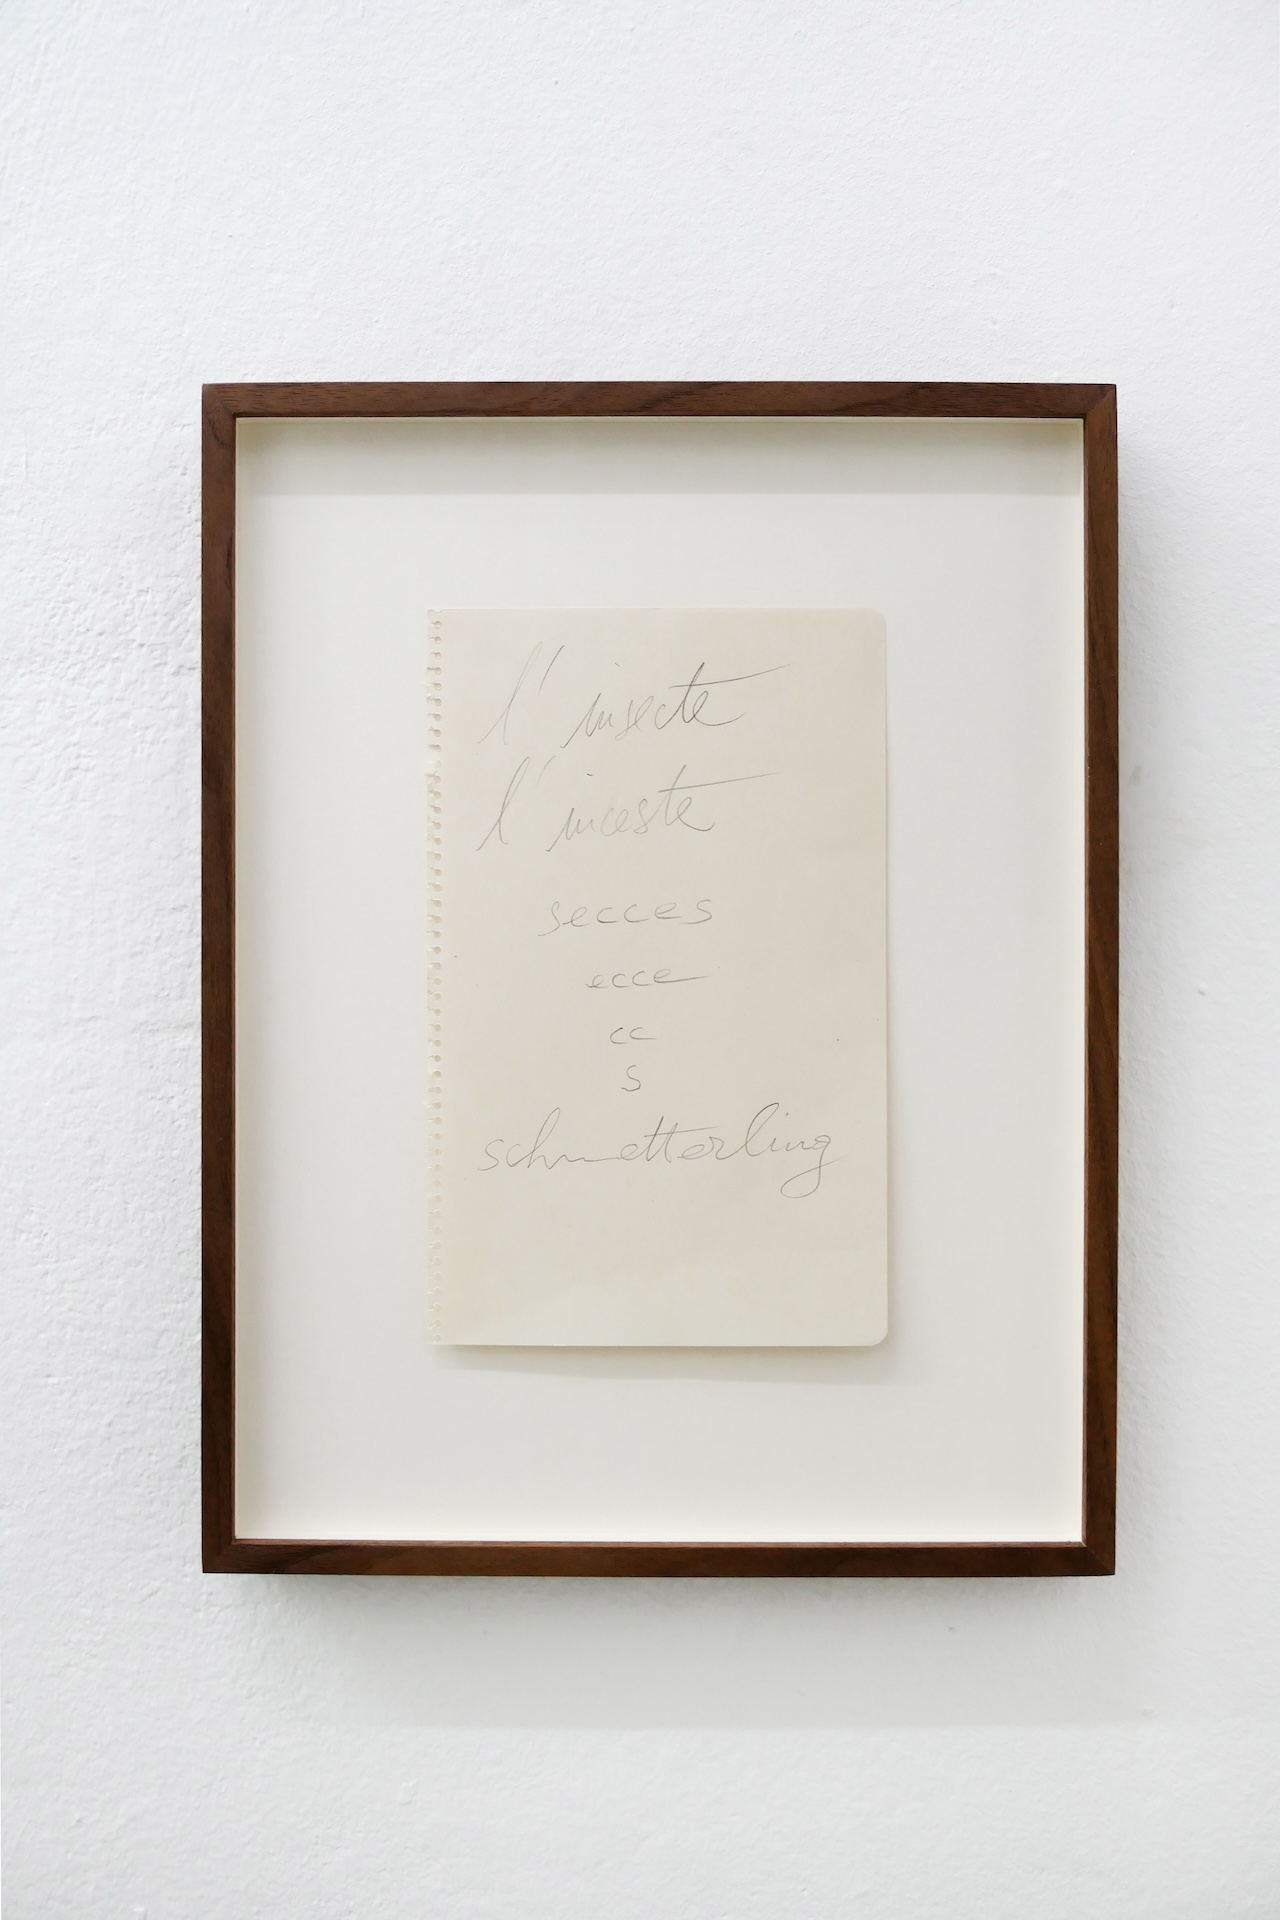 l'insecte
l'inceste
secces
ecce
cc
s
schmetterling